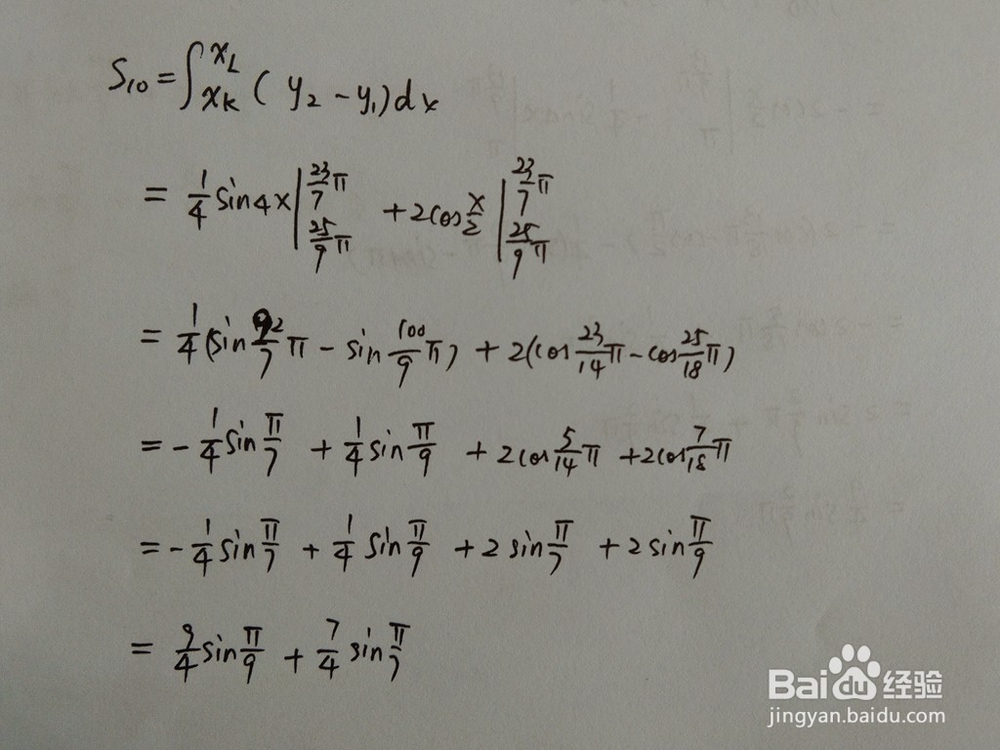 S₁₀ = ∫_{x_K}^{x_L} (y₂ - y₁)dx
= 1/4 sin4x |_{25/9 π}^{23/7 π} + 2cos x/2 |_{25/9 π}^{23/7 π}
= 1/4 (sin 92/7 π - sin 100/9 π) + 2(cos 23/14 π - cos 25/18 π)
= - 1/4 sin π/7 + 1/4 sin π/9 + 2cos 5/14 π + 2cos 7/18 π
= - 1/4 sin π/7 + 1/4 sin π/9 + 2 sin π/7 + 2 sin π/9
= 9/4 sin π/9 + 7/4 sin π/7
Baidu 经验
jingyan.baidu.com